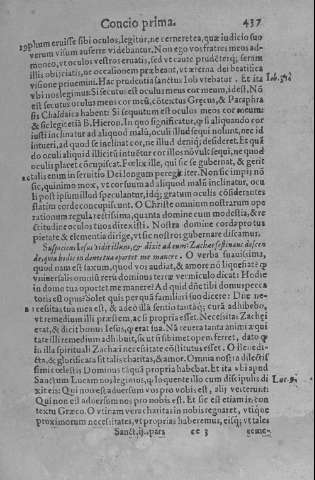 Concio prima. 437
sophum eruisse sibi oculos, legitur, ne cerneret ea, quæ iudicio suo
verum visum auferre videbantur. Non ego vos fratres meos ad-
moneo, vt oculos vestros eruatis, sed vt caute prudéterq; seram
illis obijciatis, ne occasionem præbeant, vt æterna dei beatifica
visione priuemini. Hac prudentia sanctus Iob vtebatur. Et ita Iob. 31.
vbi nos legimus: Si secutus est oculus meus cor meum, idest, Nã
est secutus oculus meus cor meũ, cõtextus Grecus, & Paraphra
sis Chaldaica habent: Si sequutum est oculus meos cor meum:
& sic legit etiã B. Hieron. In quo significatur, q̃ si aliquando cor
iusti inclinatur ad aliquod malũ, oculi illud sequi nolunt, nec id
intueri, ad quod se inclinat cor, ne illud deniq; desideret. Et quã
do oculi aliquid illicitũ intuẽtur cor illos nõ vult sequi, ne quod
oculis placet occupiscat. Fœlix ille, qui sic se gubernat, & gerit
talis enim in seruitio Dei longum peregit iter. Non sic impij nõ
sic, quinimo mox, vt cor suum ad aliquod malũ inclinatur, ocu
li post ipsum illud speculantur, idq; gratum oculis cõsiderantes
statim corde concupiscunt. O Christe omnium nostrarum ope
rationum regula rectissima, quanta domine cum modestia, & re
ctitudine oculos tuos direxisti. Nostra domine corda pro tua
pietate & clementia dirige, vt sic nostros gubernare discamus.
Suspiciens Iesus vidit illum, & dixit ad eum: Zachee festinans descen
de, quia hodie in domo tua oportet me manere. O verba suauissima,
quod nam est saxum, quod vos audiat, & amore nõ liquefiat?
vniuersalis omniũ reru dominus teterq; vermiculo dicat: Hodie
in domo tua oportet me manere? Ad quid dñe tibi domus pecca
toris est opus? Solet quis per quã familiari suo dicere: Due ne-
cessitas tua mea est, & adeo illa sentio tanq; cura adhibebo,
vt remedium illi præstem, ac si propria esset. Necessitas Zachęi
erat, & dicit bonus Iesus, q̃ erat sua. Nã reuera tanta animi æqui
tate illi remedium adhibuit, sicut si sibimet opem ferret, dato q̃
in illa spirituali Zachæi necessitate cõstitutus esset. O benedi-
cta, & glorificata sit talis charitas, & amor. Omnia nostra dilectis
simi cœlestis Dominus tãquã propria habebat. Et ita vbi apud
Sanctum Lucam nos legimus, q̃ loquente illo cum discipulis di
xit eis: Qui non est aduersum vos pro vobis est, alij verterunt: Luc. 9.
Qui non est aduersum nos pro nobis est. Et sic est etiam in con
textu Græco. O vtinam vera charitas in nobis regnaret, vtiq; ne
proximorum necessitates, vt proprias haberemus, eisq; vt tales
Sanct. ij. pars ee 3